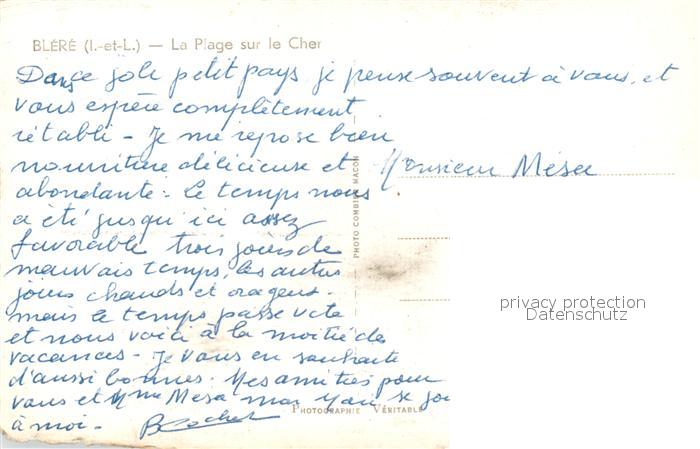 BLÉRÉ (I.-et-L.) — La Plage sur le Cher
Dans ce joli petit pays je pense souvent à vous, et
vous espère complètement
rétabli - Je me repose bien
nourriture délicieuse et
abondante - Le temps nous
a été jusqu'ici assez
favorable trois jours de
mauvais temps, les autres
jours chauds et orageux -
mais le temps passe vite
et nous voici à la moitié des
vacances - Je vous en souhaite
d'aussi bonnes. Mes amitiés pour
vous et Mme Mesa mon mari se joi
à moi -
Monsieur Mesa
PHOTO COMBIER MACON
PHOTOGRAPHIE VÉRITABLE
privacy protection
Datenschutz